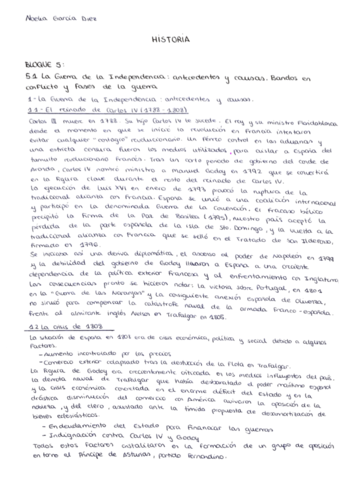 Noelia García Diez
HISTORIA
BLOQUE 5:
5.1 La Guerra de la Independencia: antecedentes y causas. Bandos en
conflicto y fases de la guerra
1- La Guerra de la Independencia: antecedentes y causas.
1.1- El reinado de Carlos IV (1788 - 1808)
Carlos III muere en 1788. Su hijo Carlos IV le sucede. El rey y su ministro Floridablanca
desde el momento en que se inició la revolución en Francia intentaron
evitar cualquier "contagio" revolucionario. Un férreo control en las aduanas y
una estricta censura fueron los medios utilizados, para aislar a España del
tumulto revolucionario francés. Tras un corto período de gobierno del conde de
Aranda, Carlos IV nombró ministro a Manuel Godoy en 1792 que se convertirá
en la figura clave durante el resto del reinado de Carlos IV.
La ejecución de Luis XVI en enero de 1793 provocó la ruptura de la
tradicional alianza con Francia. España se unió a una coalición internacional
y participó en la denominada Guerra de la Convención. El fracaso bélico
precipitó la firma de la Paz de Basilea (1795), nuestro país aceptó la
pérdida de la parte española de la isla de Sto. Domingo, y la vuelta a la
tradicional alianza con Francia que se selló en el Tratado de San Ildefonso,
firmado en 1796.
Se iniciaba así una deriva diplomática, el ascenso al poder de Napoleón en 1799
y la debilidad del gobierno de Godoy llevaron a España a una creciente
dependencia de la política exterior francesa y al enfrentamiento con Inglaterra
Las consecuencias pronto se hicieron notar: la victoria sobre Portugal, en 1801
en la "Guerra de las Naranjas" y la consiguiente anexión española de Olivenza,
no sirvió para compensar la catástrofe naval de la armada Franco-española
frente al almirante inglés Nelson en Trafalgar en 1805.
1.2 La crisis de 1808
La situación de España en era de crisis económica, política y social debido a algunos
factores:
- Aumento incontrolado por los precios
- Comercio exterior colapsado tras la destrucción de la flota en Trafalgar.
La figura de Godoy era crecientemente criticada en los medios influyentes del país.
La derrota naval de Trafalgar que había desbaratado el poder marítimo español
y la crisis económica concretada en el enorme déficit del Estado y en la
drástica disminución del comercio con América avivaron la oposición de la
nobleza, y del clero, asustado ante la tímida propuesta de desamortización de
bienes eclesiásticos.
- Endeudamiento del Estado para financiar las guerras
- Indignación contra Carlos IV y Godoy
Todos estos factores cristalizaron en la formación de un grupo de oposición
en torno al Príncipe de Asturias, partido fernandino.